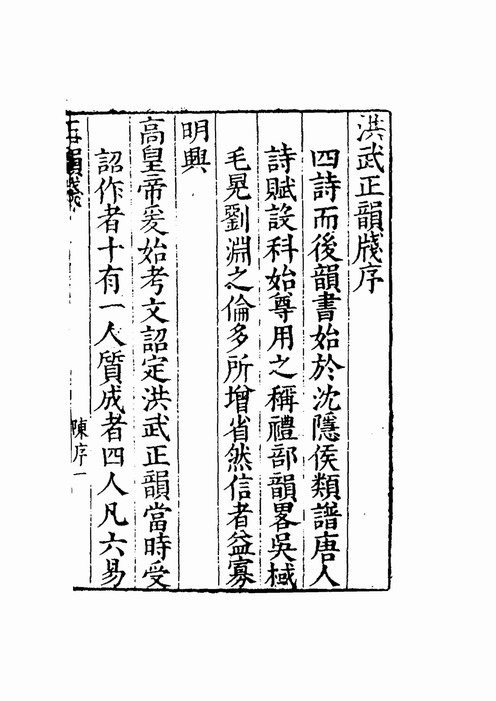 洪武正韻牋序
四詩而後韻書始於沈隱侯類譜唐人
詩賦設科始尊用之稱禮部韻畧吳棫
毛晃劉淵之倫多所增省然信者益寡
明興
高皇帝爰始考文詔定洪武正韻當時受
詔作者十有一人質成者四人凡六易
正韻牋
陳序一